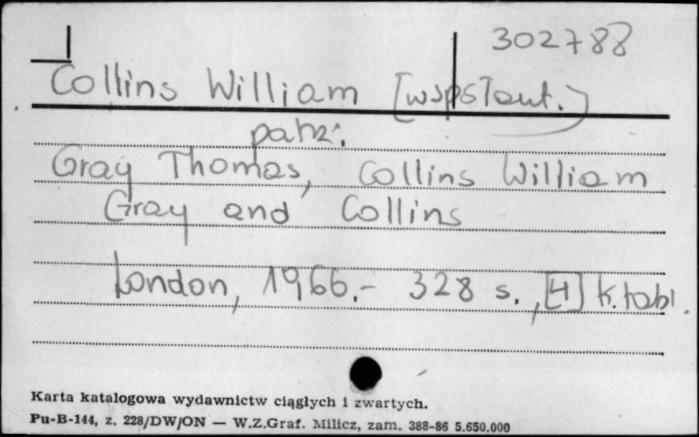 302788
Collins William [współaut.]
patrz:
Gray Thomas, Collins William
Gray and Collins
London, 1966.- 328 s., [4] k.tabl.
Karta katalogowa wydawnictw ciągłych i zwartych.
Pu-B-144, z. 228/DW/ON — W.Z.Graf. Milicz, zam. 388-86 5.650.000